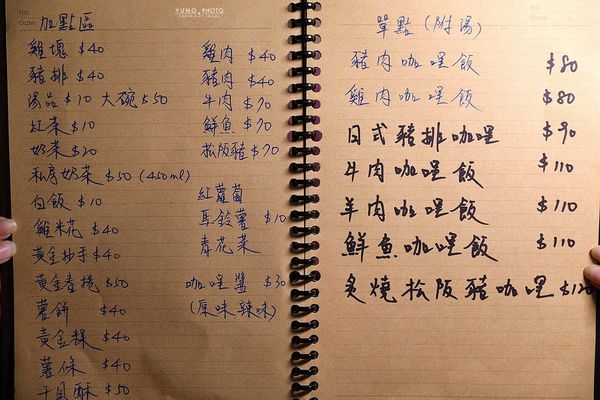 No:
Date:
YUNO.PHOTO
COPYRIGHT IMAGE
加點區
雞塊 $40
豬排 $40
湯品 $10 大碗 $50
紅茶 $10
奶茶 $20
私房奶茶 $50 (450ml)
白飯 $10
雞米花 $40
黃金抄手 $40
黃金春捲 $50
薯餅 $40
黃金粿 $40
薯條 $40
干貝酥 $50
雞肉 $40
豬肉 $40
牛肉 $70
鮮魚 $70
松阪豬 $70
紅蘿蔔
馬鈴薯 $10
青花菜
咖哩醬 $30
(原味 辣味)
單點 (附湯)
No:
Date:
豬肉咖哩飯 $80
雞肉咖哩飯 $80
日式豬排咖哩 $90
牛肉咖哩飯 $110
羊肉咖哩飯 $110
鮮魚咖哩飯 $110
炙燒松阪豬咖哩 $120